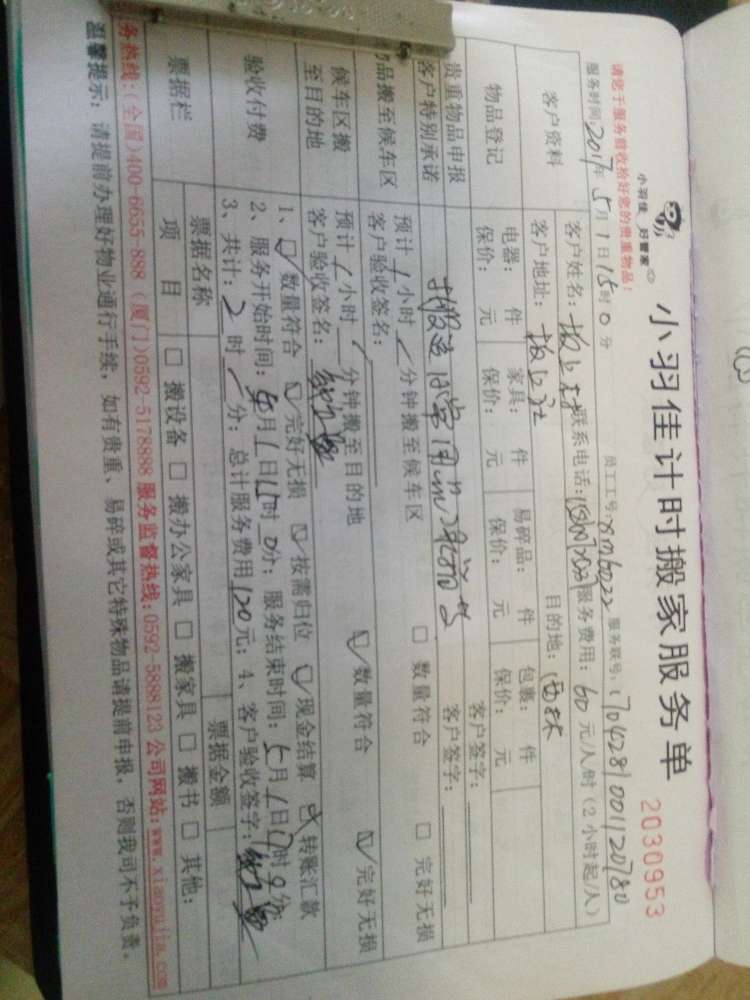 小羽佳 好管家
小羽佳计时搬家服务单
2030953
请您于服务前收拾好您的贵重物品！
员工工号: xm6022 服务联号: 1704281001120780
服务时间: 2017年 5月 1日 15时 0分
客户资料
客户姓名: 联系电话: 服务费用: 60 元/人时（2小时起/人）
客户地址: 目的地:
物品登记
电器: 件 家具: 件 易碎品: 件 包裹: 件
保价: 元 保价: 元 保价: 元 保价: 元
贵重物品申报
客户签字:
客户特别承诺
客户签字:
物品搬至候车区
预计 1 小时 分钟搬至候车区 □ 数量符合 □ 完好无损
客户验收签名:
候车区搬至目的地
预计 1 小时 分钟搬至目的地 ☑ 数量符合 ☑ 完好无损
客户验收签名:
验收付费
1、☑ 数量符合 ☑ 完好无损 ☑ 按需归位 ☑ 现金结算 转账汇款
2、服务开始时间: 5月 1日 15时 0分; 服务结束时间: 5月 1日 17时 0分
3、共计: 2 时 分; 总计服务费用 120 元; 4、客户验收签字:
票据栏
票据名称 票据金额
项 目 □ 搬设备 □ 搬办公家具 □ 搬家具 □ 搬书 □ 其他:
务热线:(全国)400-6655-888 (厦门)0592-5178888 服务监督热线:0592-5888123 公司网站:www.xiaoyujia.com
温馨提示: 请提前办理好物业通行手续，如有贵重、易碎或其它特殊物品请提前申报，否则我司不予负责。